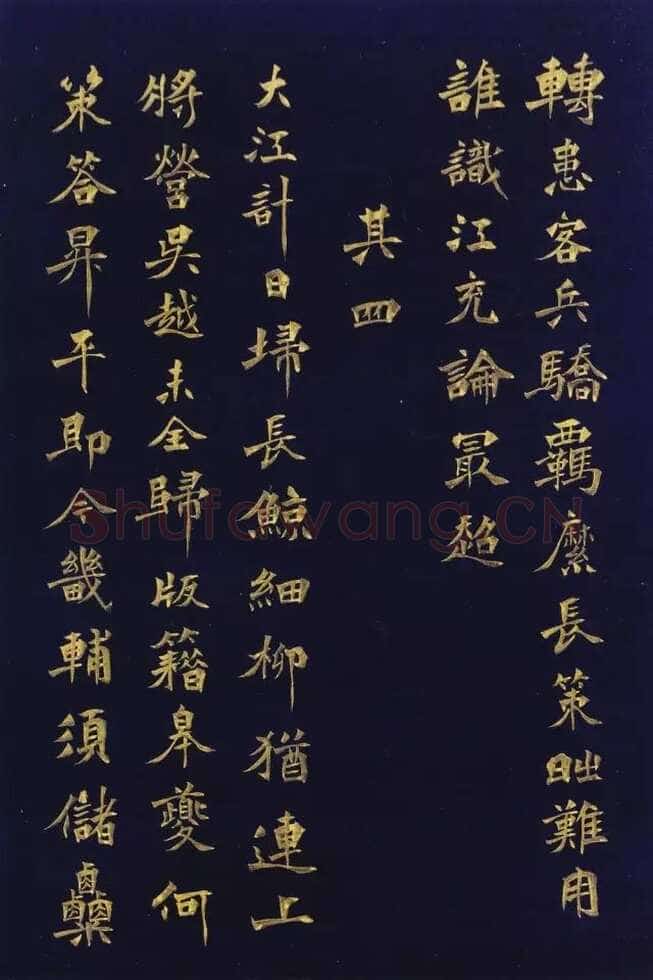 轉患客兵驕羈縻長策昢難用
誰識江充論最超
其四
大江計日埽長鯨細柳猶連上
將營吳越未全歸版籍皋夔何
策答昇平即今畿輔須儲
Shufawang.CN